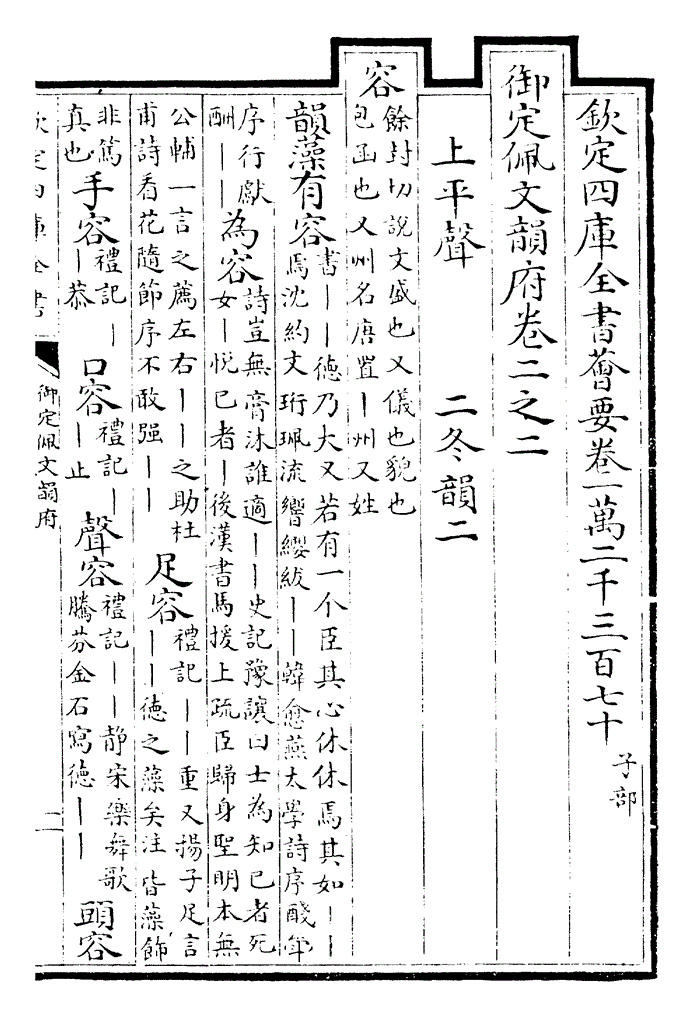 欽定四庫全書薈要卷一萬二千三百七十 子部
御定佩文韻府卷二之二
上平聲 二冬韻二
容
餘封切說文盛也又儀也貌也
包函也又州名唐置丨州又姓
韻藻有容
書丨丨德乃大又若有一个臣其心休休焉其如丨丨
焉沈約文珩珮流響纓紱丨丨韓愈燕太學詩序醆斝
序行獻
酬丨丨
為容
詩豈無膏沐誰適丨丨史記豫讓曰士為知已者死
女丨悅已者丨後漢書馬援上疏臣歸身聖明本無
公輔一言之薦左右丨丨之助杜
甫詩看花隨節序不敢强丨丨
足容
禮記丨丨重又揚子足言
丨丨德之藻矣注皆藻飾
非篤
真也
手容
禮記丨
丨恭
口容
禮記丨
丨止
聲容
禮記丨丨靜宋樂舞歌
騰芬金石寫德丨丨
頭容
欽定四庫全書
御定佩文韻府
二